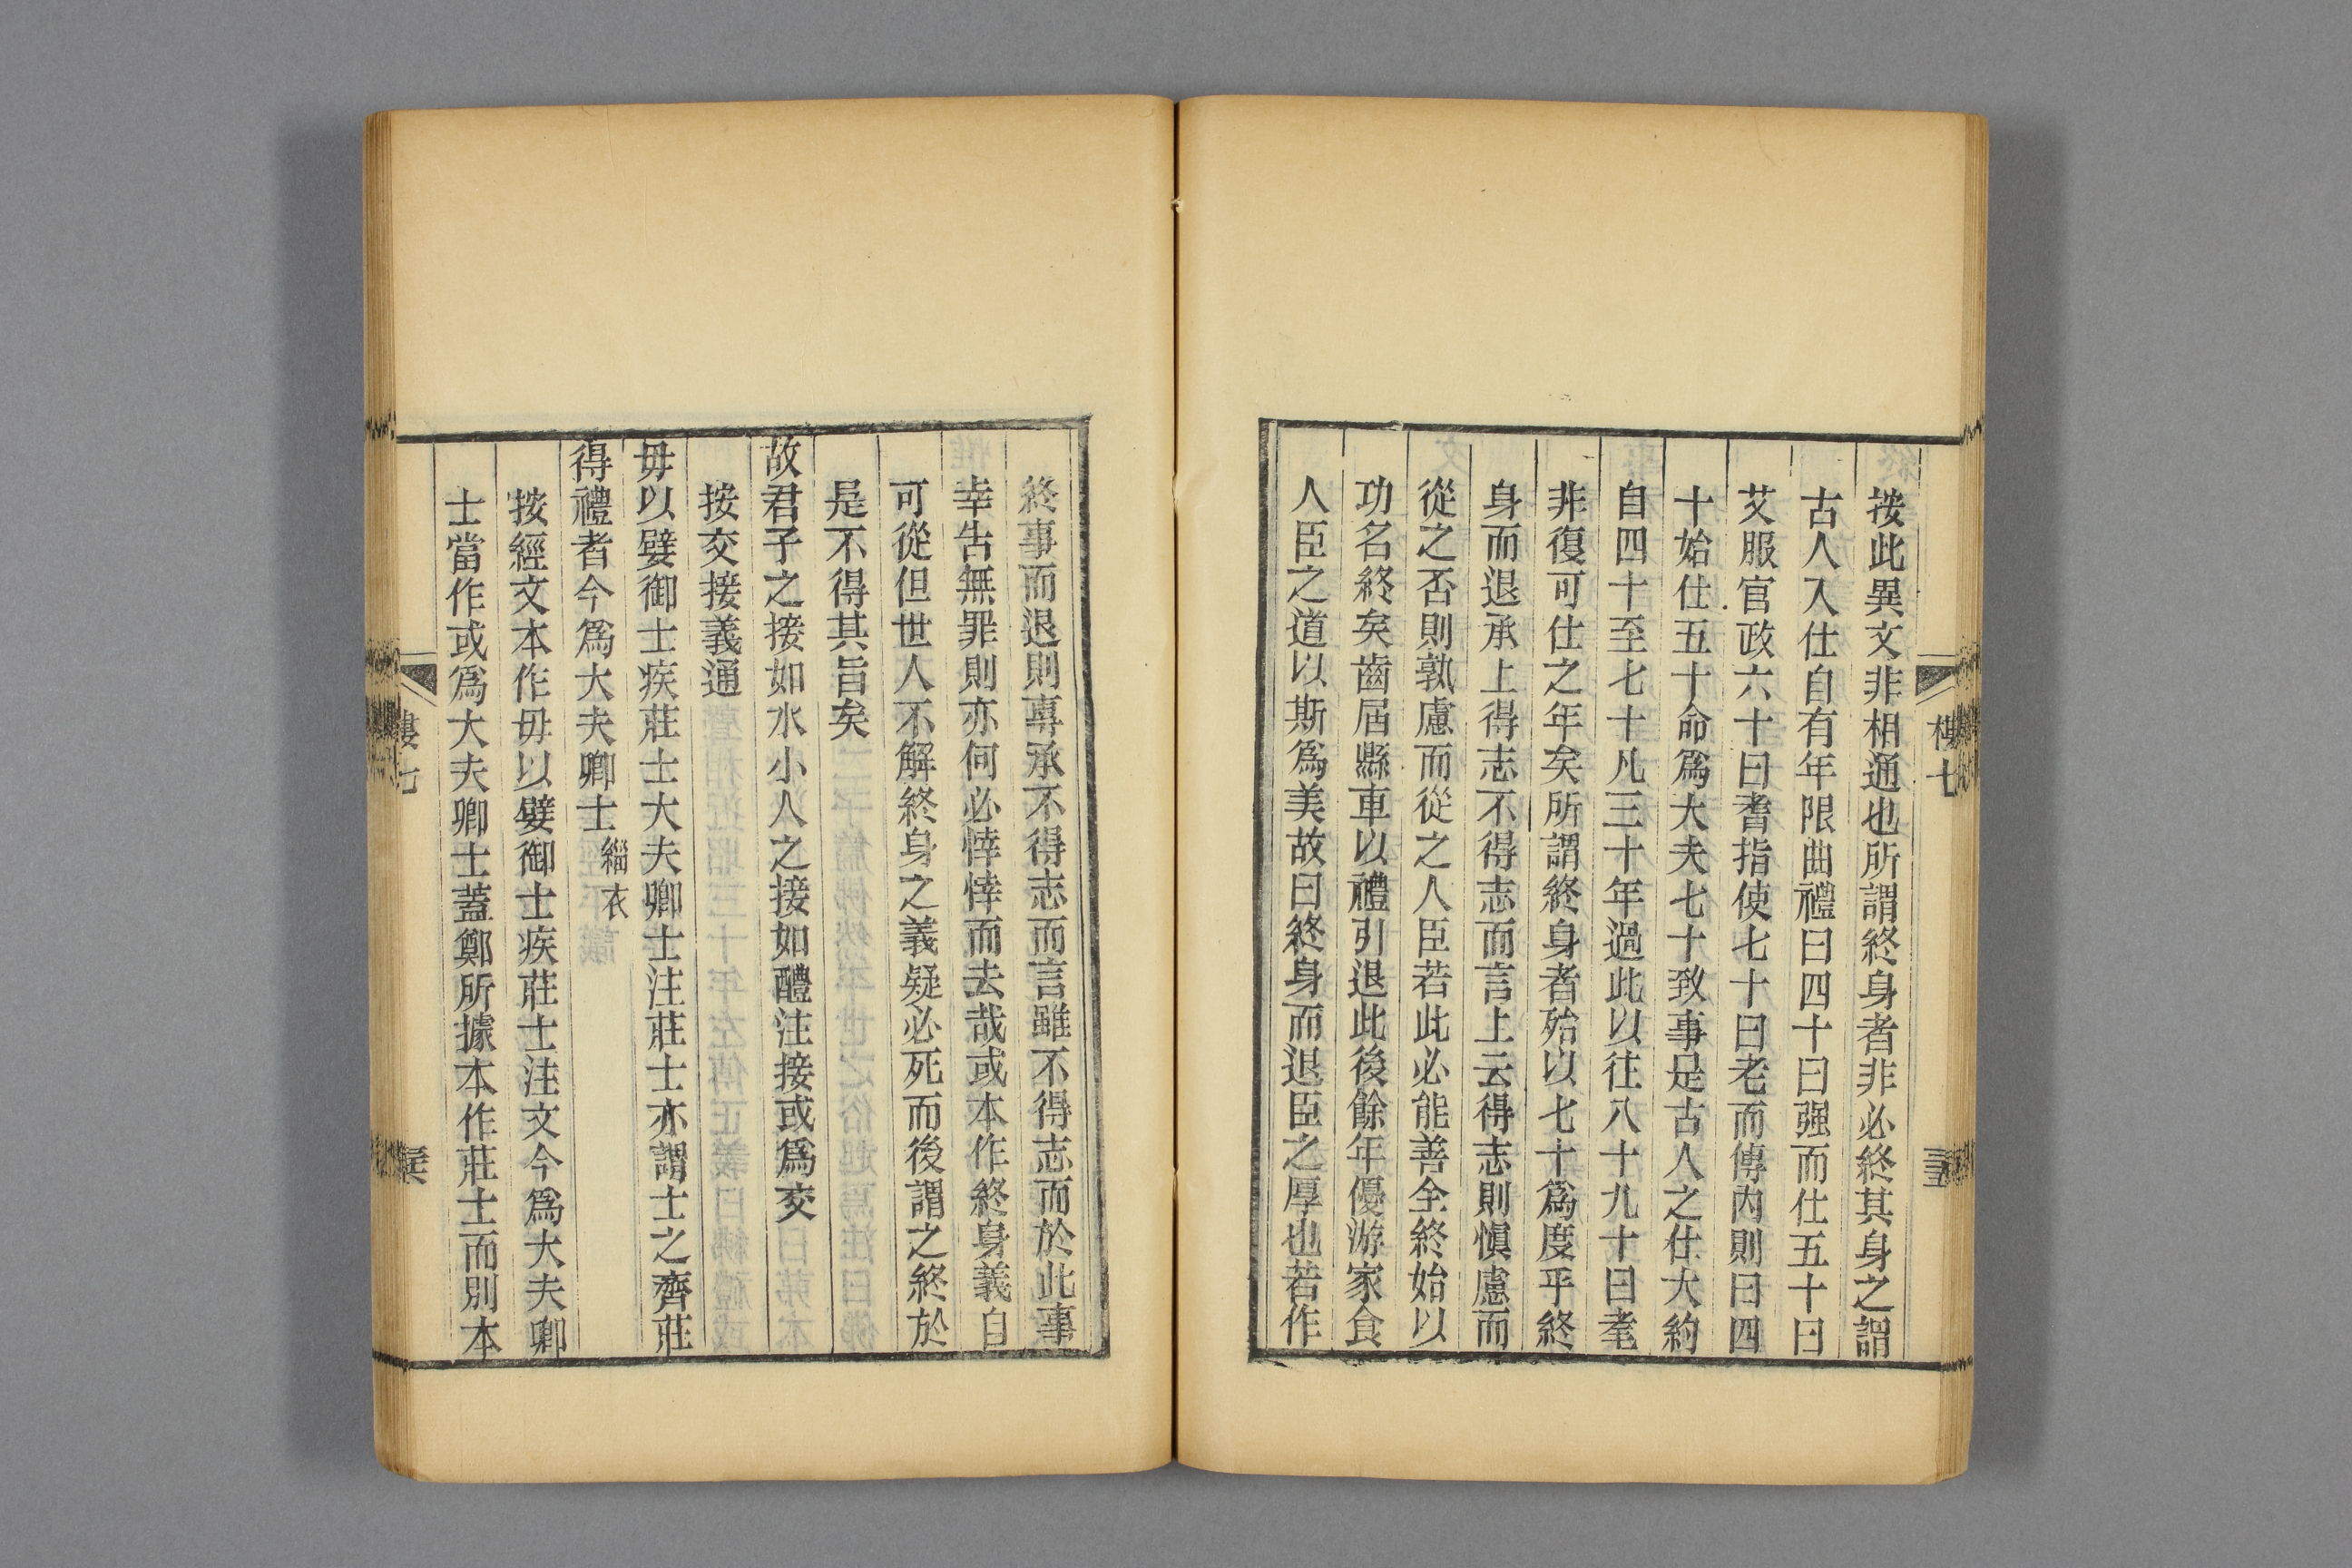 按此異文非相通也所謂終身者非必終其身之謂
古人入仕自有年限曲禮曰四十曰强而仕五十曰
艾服官政六十曰耆指使七十曰老而傳內則曰四
十始仕五十命爲大夫七十致事是古人之仕大約
自四十至七十凡三十年過此以往八十九十曰耄
非復可仕之年矣所謂終身者殆以七十爲度乎終
身而退承上得志不得志而言上云得志則愼慮而
從之否則孰慮而從之人臣若此必能善全終始以
功名終矣齒屆縣車以禮引退此後餘年優游家食
人臣之道以斯爲美故曰終身而退臣之厚也若作
終事而退則專承不得志而言雖不得志而於此事
幸告無罪則亦何必悻悻而去哉或本作終身義自
可從但世人不解終身之義疑必死而後謂之終於
是不得其旨矣
故君子之接如水小人之接如醴注接或爲交
按交接義通
毋以嬖御士疾莊士大夫卿士注莊士亦謂士之齊莊
得禮者今爲大夫卿士緇衣
按經文本作毋以嬖御士疾莊士注文今爲大夫卿
士當作或爲大夫卿士蓋鄭所據本作莊士而別本
樓七